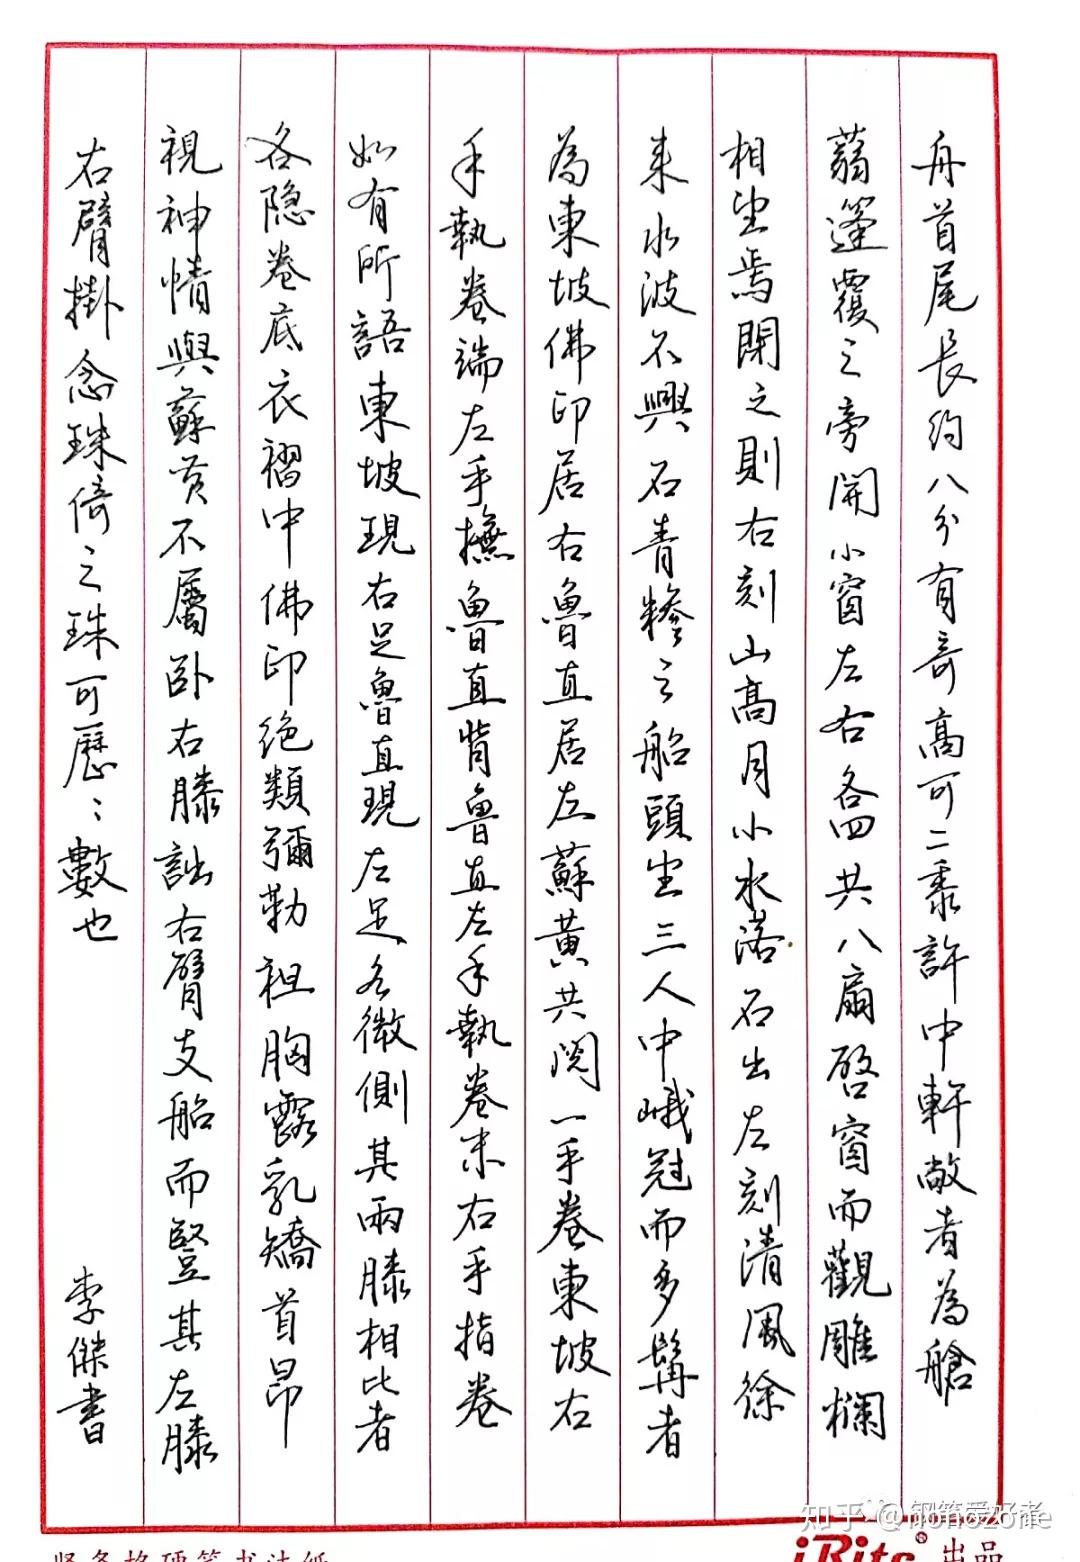 舟首尾長約八分有奇高可二黍許中軒敞者為艙
蒻篷覆之旁開小窗左右各四共八扇啓窗而觀雕欄
相望焉閉之則右刻山高月小水落石出左刻清風徐
来水波不興石青糝之船頭坐三人中峨冠而多髯者
為東坡佛印居右魯直居左蘇黃共閱一手卷東坡右
手執卷端左手撫魯直背魯直左手執卷末右手指卷
如有所語東坡現右足魯直現左足各微側其兩膝相比者
各隐卷底衣褶中佛印绝類彌勒袒胸露乳矯首昂
視神情與蘇黄不屬卧右膝詘右臂支船而豎其左膝
右臂掛念珠倚之珠可歷〻數也
李傑書
竖条格硬笔书法纸
iRite® 出品
知乎